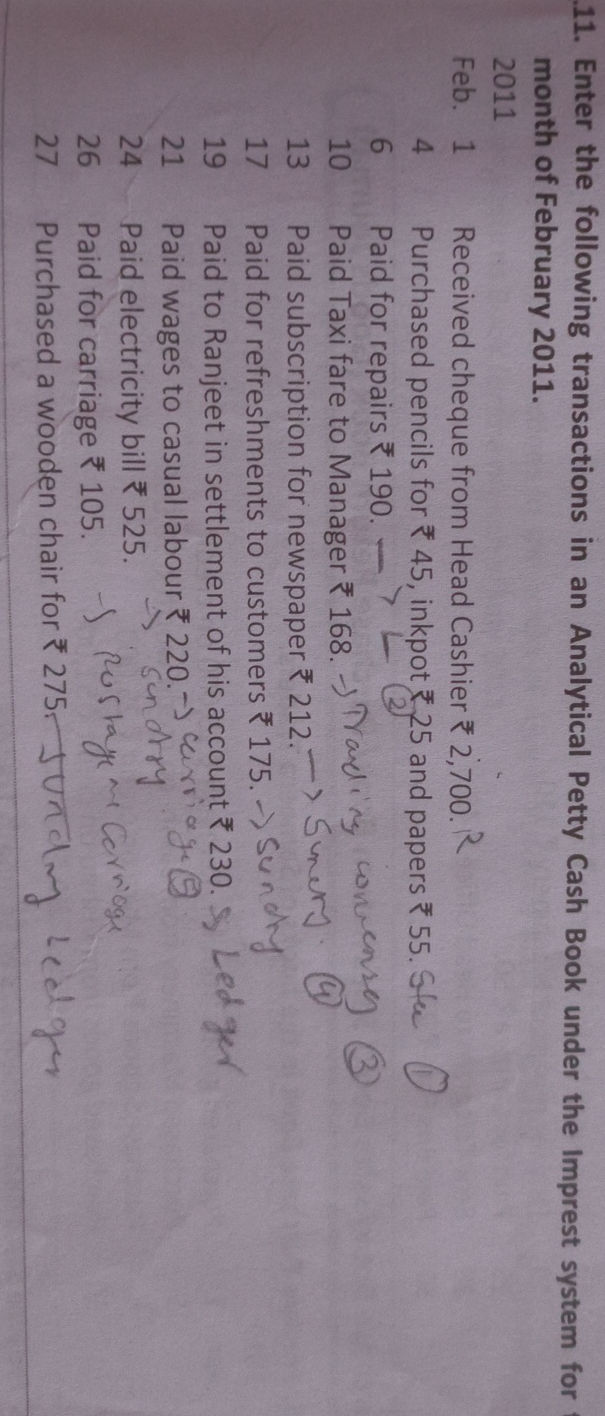 .11. Enter the following transactions in an Analytical Petty Cash Book under the Imprest system for
month of February 2011.
2011
Feb. 1 Received cheque from Head Cashier ₹ 2,700. R
4 Purchased pencils for ₹ 45, inkpot ₹ 25 and papers ₹ 55. ①
6 Paid for repairs ₹ 190. → L ②
10 Paid Taxi fare to Manager ₹ 168. → ③
13 Paid subscription for newspaper ₹ 212. → ④
17 Paid for refreshments to customers ₹ 175. → Sundry
19 Paid to Ranjeet in settlement of his account ₹ 230. Ledger
21 Paid wages to casual labour ₹ 220. → carriage ⑤
24 Paid electricity bill ₹ 525. → sundry
26 Paid for carriage ₹ 105. → Carriage
27 Purchased a wooden chair for ₹ 275. Ledger